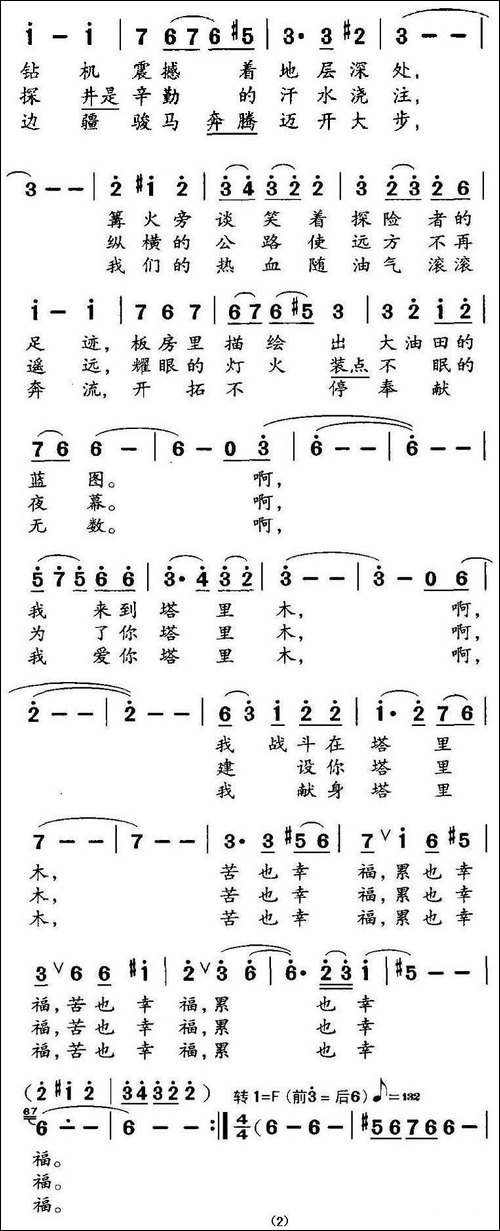 i - i | 7 6 7 6 #5 | 3· 3 #2 | 3 - - |
钻 机 震 撼 着 地 层 深 处,
探 井是 辛 勤 的 汗 水 浇 注,
边 疆 骏 马 奔 腾 迈 开 大 步,
3 - - | 2 #1 2 | 3 4 3 2 | 3 2 3 2 6 |
篝 火 旁 谈 笑 着 探 险 者 的
纵 横 的 公 路 使 远 方 不 再
我 们 的 热 血 随 油 气 滚 滚
i - i | 7 6 7 | 6 7 6 #5 3 | 3 2 1 2 |
足 迹, 板 房 里 描 绘 出 大 油 田 的
遥 远, 耀 眼 的 灯 火 装点 不 眠 的
奔 流, 开 拓 不 停 奉 献
7 6 6 - | 6 - 0 3 | 6 - - | 6 - - |
蓝 图。 啊,
夜 幕。 啊,
无 数。 啊,
5 7 5 6 6 | 3· 4 3 2 | 3 - - | 3 - 0 6 |
我 来 到 塔 里 木, 啊,
为 了 你 塔 里 木, 啊,
我 爱 你 塔 里 木, 啊,
2 - - | 2 - - | 6 3 1 2 2 | i· 2 7 6 |
我 战 斗 在 塔 里
建 设 你 塔 里
我 献 身 塔 里
7 - - | 7 - - | 3· 3 #5 6 | 7 ∨ i 6 #5 |
木, 苦 也 幸 福, 累 也 幸
木, 苦 也 幸 福, 累 也 幸
木, 苦 也 幸 福, 累 也 幸
3 ∨ 6 6 #i | 2 ∨ 3 6 | 6· 2 3 i | #5 - - |
福, 苦 也 幸 福, 累 也 幸
福, 苦 也 幸 福, 累 也 幸
福, 苦 也 幸 福, 累 也 幸
(2 #1 2 | 3 4 3 2 2) 转 1=F (前3=后6) ♪=132
67 6 - - | 6 - - :‖ 4/4 (6 - 6 - | #5 6 7 6 - - |
福。
福。
福。
(2)